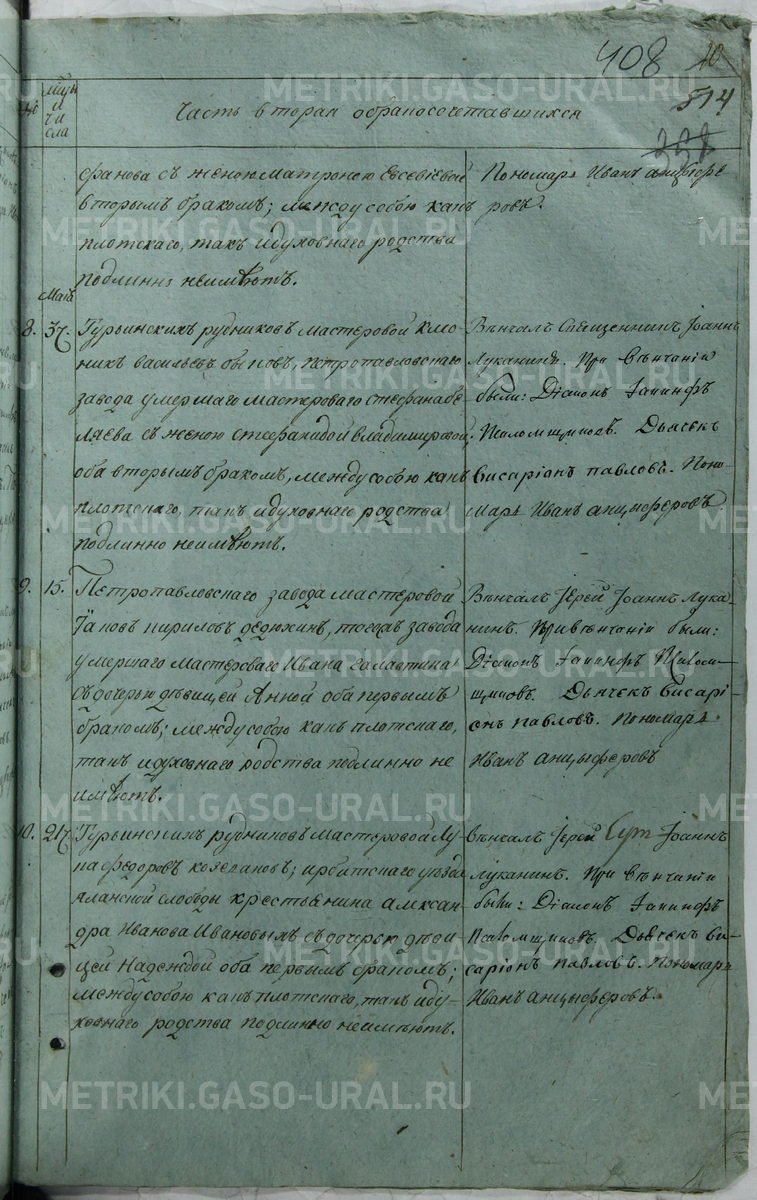 408
10
514
338
№
мцы и числа
Часть вторая обраносочетавшихся
фанова съ женою Матроною Евсевіевой
вторымъ бракомъ; между собою какъ
плотскаго, такъ и духовнаго родства
подлинно неимѣютъ.
Пономарь Иванъ анцыфе
ровъ.
Маія
8.
Гурьинскихъ рудниковъ мастеровой
никъ васильевъ быковъ, петропавловскаго
завода умершаго мастероваго стефана бе
ляева съ женою стефанидой владимировой,
оба вторымъ бракомъ, между собою какъ
плотскаго, такъ и духовнаго родства
подлинно неимѣютъ.
Вѣнчалъ Священникъ Іоаннъ
Луканинъ. При вѣнчаніи
были: Діаконъ Іакинфъ
Псаломщиковъ. Дьячекъ
висаріонъ павловъ. Поно-
марь Иванъ анцыферовъ
9. 15.
Петропавловскаго завода мастеровой
Іаковъ кириловъ дедюхинъ, тогожъ завода
умершаго мастероваго Ивана галактина
съ дочерью дѣвицей Анной оба первымъ
бракомъ; между собою какъ плотскаго,
такъ и духовнаго родства подлинно не
имѣютъ.
Вѣнчалъ Іерей Іоаннъ Лука-
нинъ. При вѣнчаніи были:
Діаконъ Іакинфъ Псалом-
щиковъ. Дьячекъ висарі-
онъ павловъ. Пономарь
Иванъ анцыферовъ
10. 27.
Гурьинскихъ рудниковъ мастеровой Лу
ка федоровъ козепановъ; ирбитскаго уѣзда
яланской слободы крестьянина алексан
дра Иванова Ивановыхъ съ дочерью дѣви
цей Надеждой оба первымъ бракомъ;
между собою какъ плотскаго, такъ и ду-
ховнаго родства подлинно неимѣютъ.
вѣнчалъ Іерей Іоаннъ
Луканинъ. При вѣнчаніи
были: Діаконъ Іакинфъ
Псаломщиковъ. Дьячекъ ви-
саріонъ павловъ. Пономарь
Иванъ анцыферовъ.
METRIKI.GASO-URAL.RU